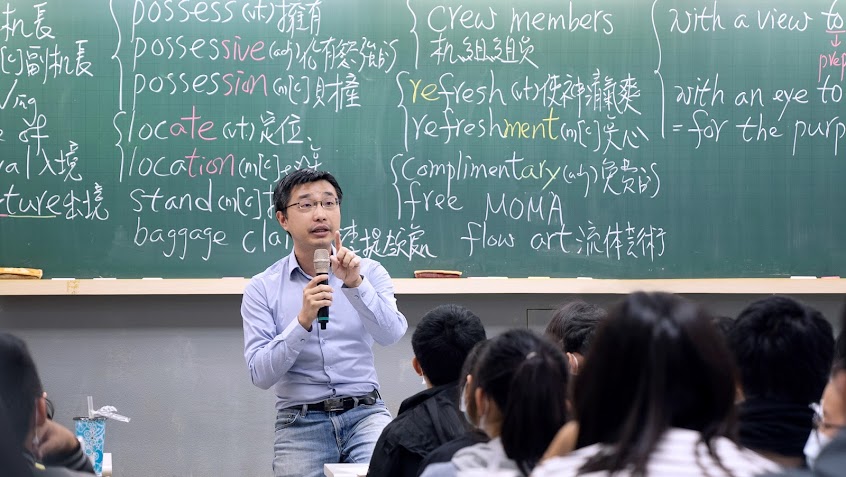 机長
[c]副机長
入境
出境
possess(vt)擁有
possessive(adj)佔有慾強的
possession(n[c]財產
locate(vt)定位
location(n[c]
stand(n[c]
baggage
提領處
crew members
机組組員
refresh(vt)使神清氣爽
refreshment(n[c]點心
complimentary(adj)免費的
free MOMA
flow art流体芸術
with a view to
prep
with an eye to
=for the purp